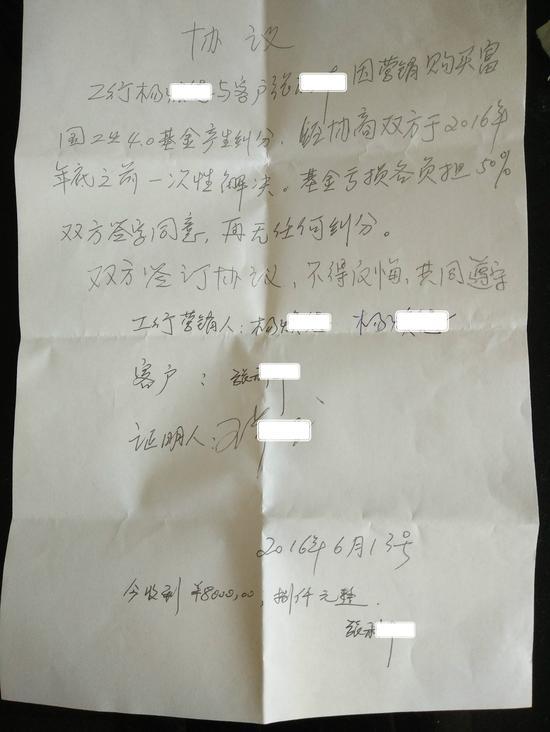 协议
工行杨 与客户张 因营销购买富
国工业4.0基金产生纠分，经协商双方于2016年
年底之前一次性解决。基金亏损各负担50%
双方签字同意，再无任何纠分。
双方签订协议，不得反悔，共同遵守
工行营销人：杨 杨
客户：张
证明人：
2016年6月13号
今收到¥8000.00，捌仟元整.
张